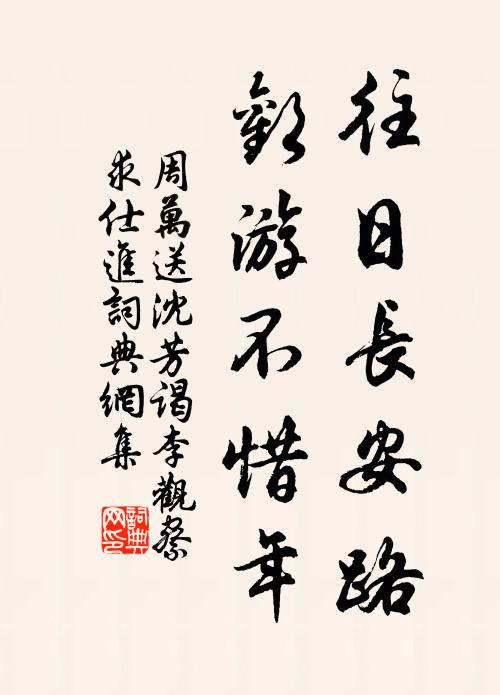 往日長安路
歡游不惜年
周萬送沈芳謁李觀察
求仕進詞典網集
詞典
网印